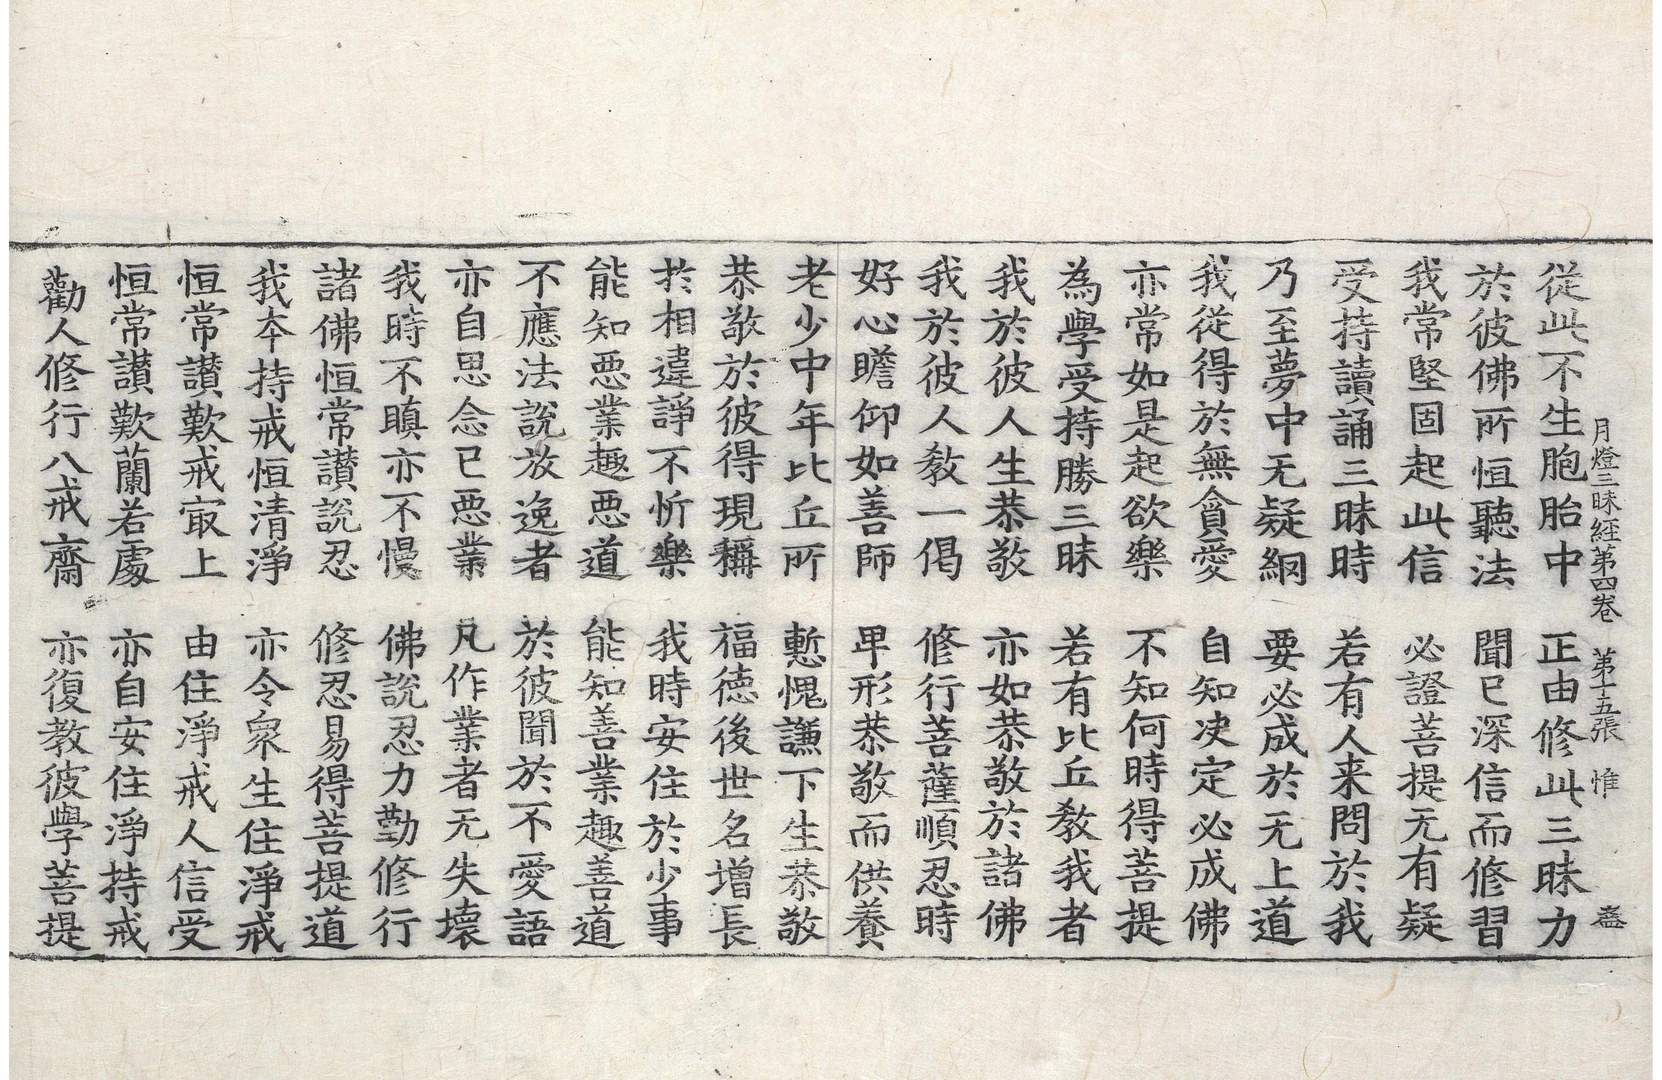 月燈三昧経第四卷 第十五張 惟 盡
從此不生胞胎中 正由修此三昧力
於彼佛所恒聽法 聞已深信而修習
我常堅固起此信 必證菩提无有疑
受持讀誦三昧時 若有人来問於我
乃至夢中无疑網 要必成於无上道
我從得於無貪愛 自知决定必成佛
亦常如是起欲樂 不知何時得菩提
為學受持勝三昧 若有比丘教我者
我於彼人生恭敬 亦如恭敬於諸佛
我於彼人教一偈 修行菩薩順忍時
好心瞻仰如善師 卑形恭敬而供養
老少中年比丘所 慙愧謙下生恭敬
恭敬於彼得現稱 福德後世名增長
於相違諍不忻樂 我時安住於少事
能知惡業趣惡道 能知善業趣善道
不應法說放逸者 於彼聞於不愛語
亦自思念已惡業 凡作業者无失壞
我時不瞋亦不慢 佛說忍力勤修行
諸佛恒常讃說忍 修忍易得菩提道
我夲持戒恒清淨 亦令衆生住淨戒
恒常讃歎戒㝡上 由住淨戒人信受
恒常讃歎蘭若處 亦自安住淨持戒
勸人修行八戒齋 亦復教彼學菩提